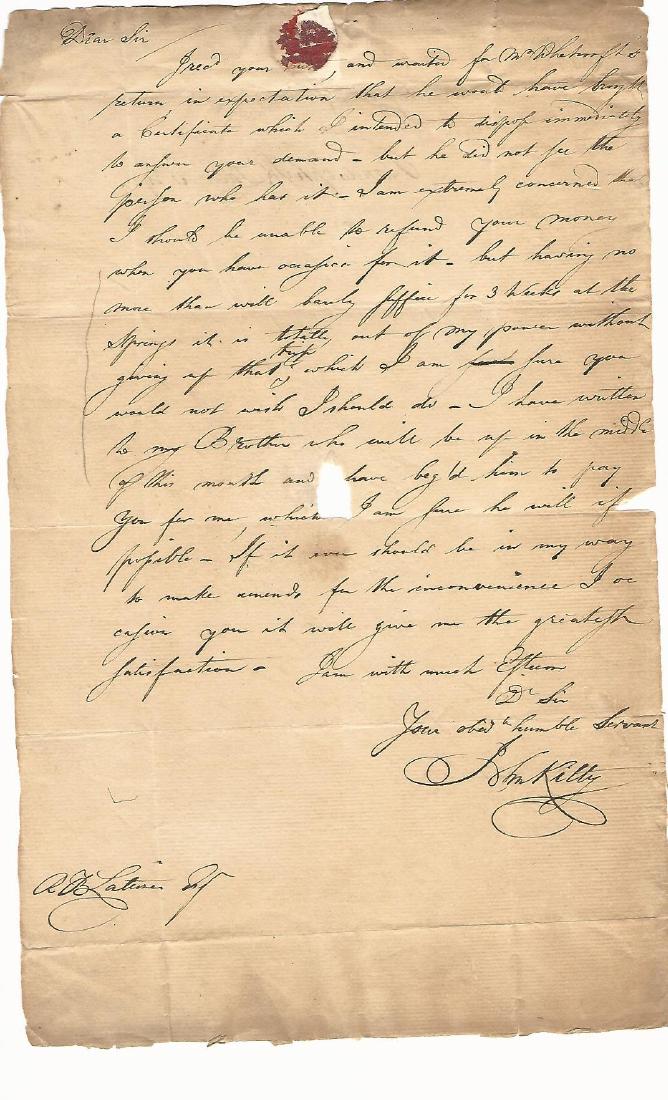 Dear Sir
I rec'd your and waited for Mr Whetcroft's
return in expectation that he would have brought
a Certificate which I intended to dispose immediately
to answer your demand - but he did not see the
person who has it - I am extremely concerned that
I should be unable to refund your money
when you have occasion for it - but having no
more than will barely suffice for 3 Weeks at the
Springs it is totally out of my power without
giving up that trip which I am sure you
would not wish I should do - I have written
to my Brother who will be up in the middle
of this month and have beg'd him to pay
you for me, which I am sure he will if
possible - If it ever should be in my way
to make amends for the inconvenience I oc
casion you it will give me the greatest
satisfaction - I am with much Esteem
Dr Sir
Your obedt humble Servant
John Kilty
Esqr